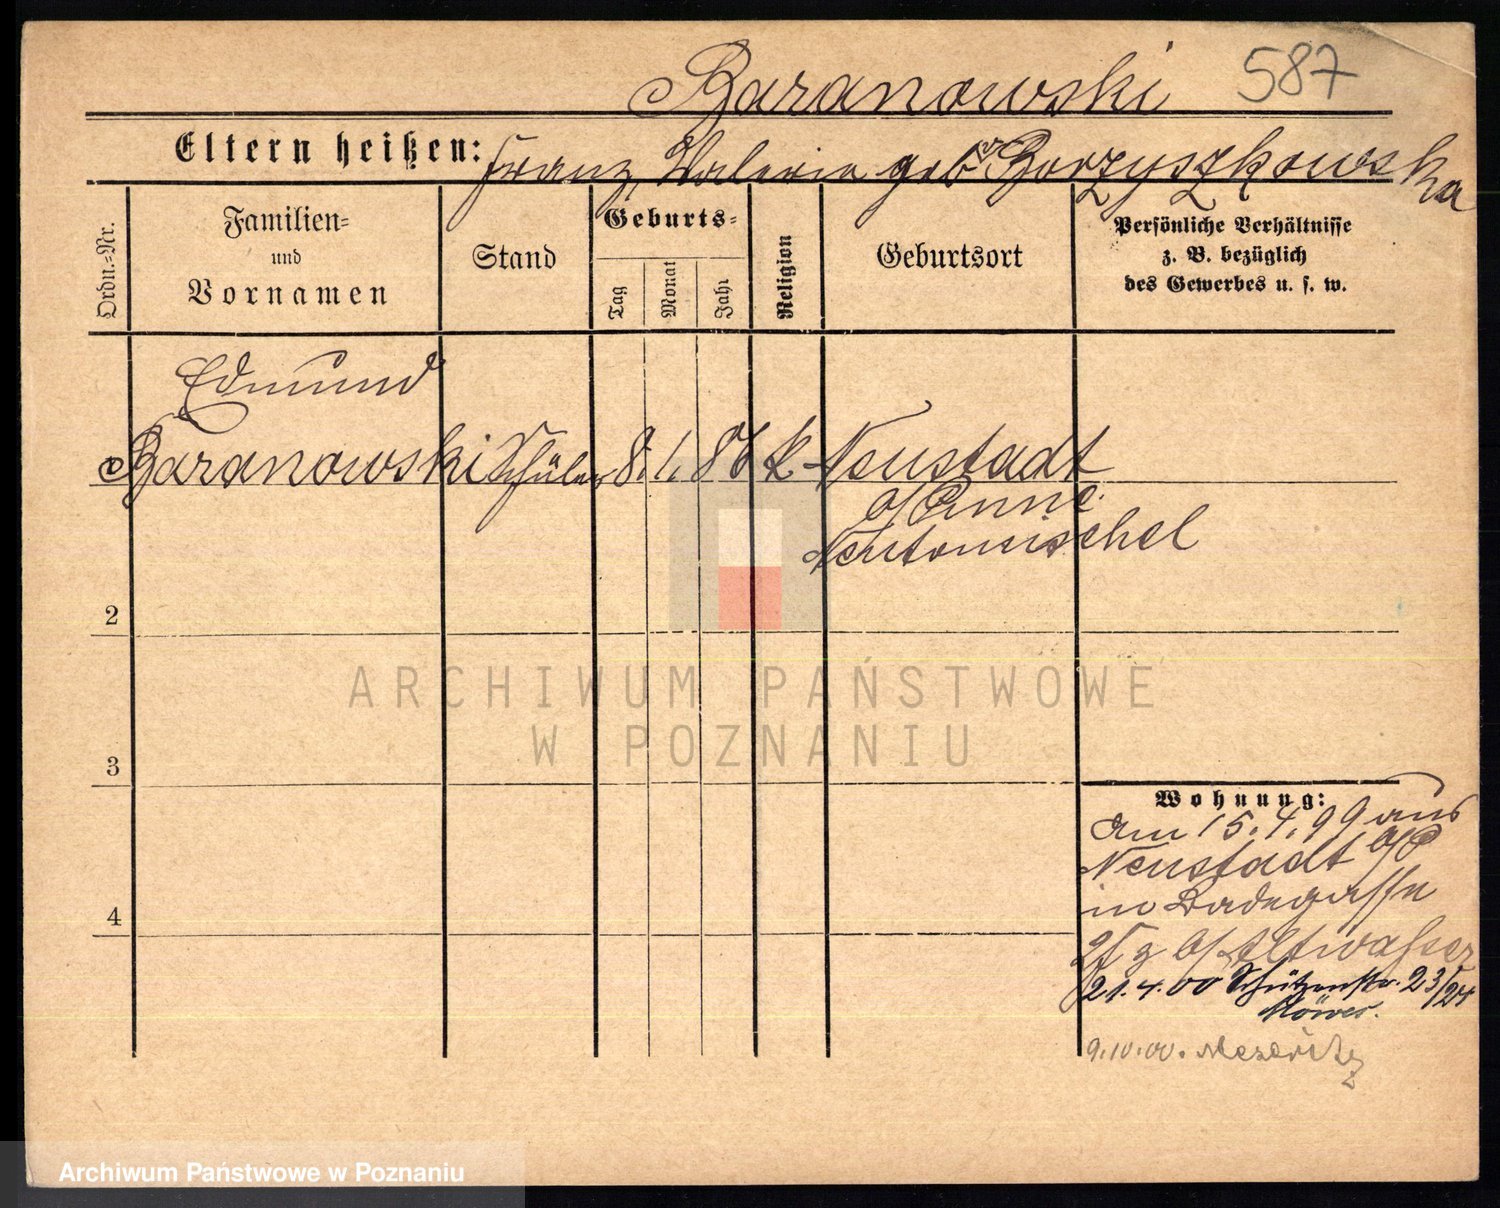 Baranowski 587
Eltern heißen: Franz, Valeria geb. Borzyszkowska
Ordn.-Nr.
Familien-
und
Vornamen
Stand
Geburts-
Tag
Monat
Jahr
Religion
Geburtsort
Persönliche Verhältnisse
z. B. bezüglich
des Gewerbes u. s. w.
Edmund
Baranowski Schüler 8. 1. 86 k Neustadt
Neutomischel
2
3
4
ARCHIWUM PAŃSTWOWE
W POZNANIU
Wohnung:
Am 15.4.99 aus
Neustadt a/P
in Badegasse
b/ Altwasser
21.4.00 Schützenstr. 23/24
9.10.00. Meseritz
Archiwum Państwowe w Poznaniu